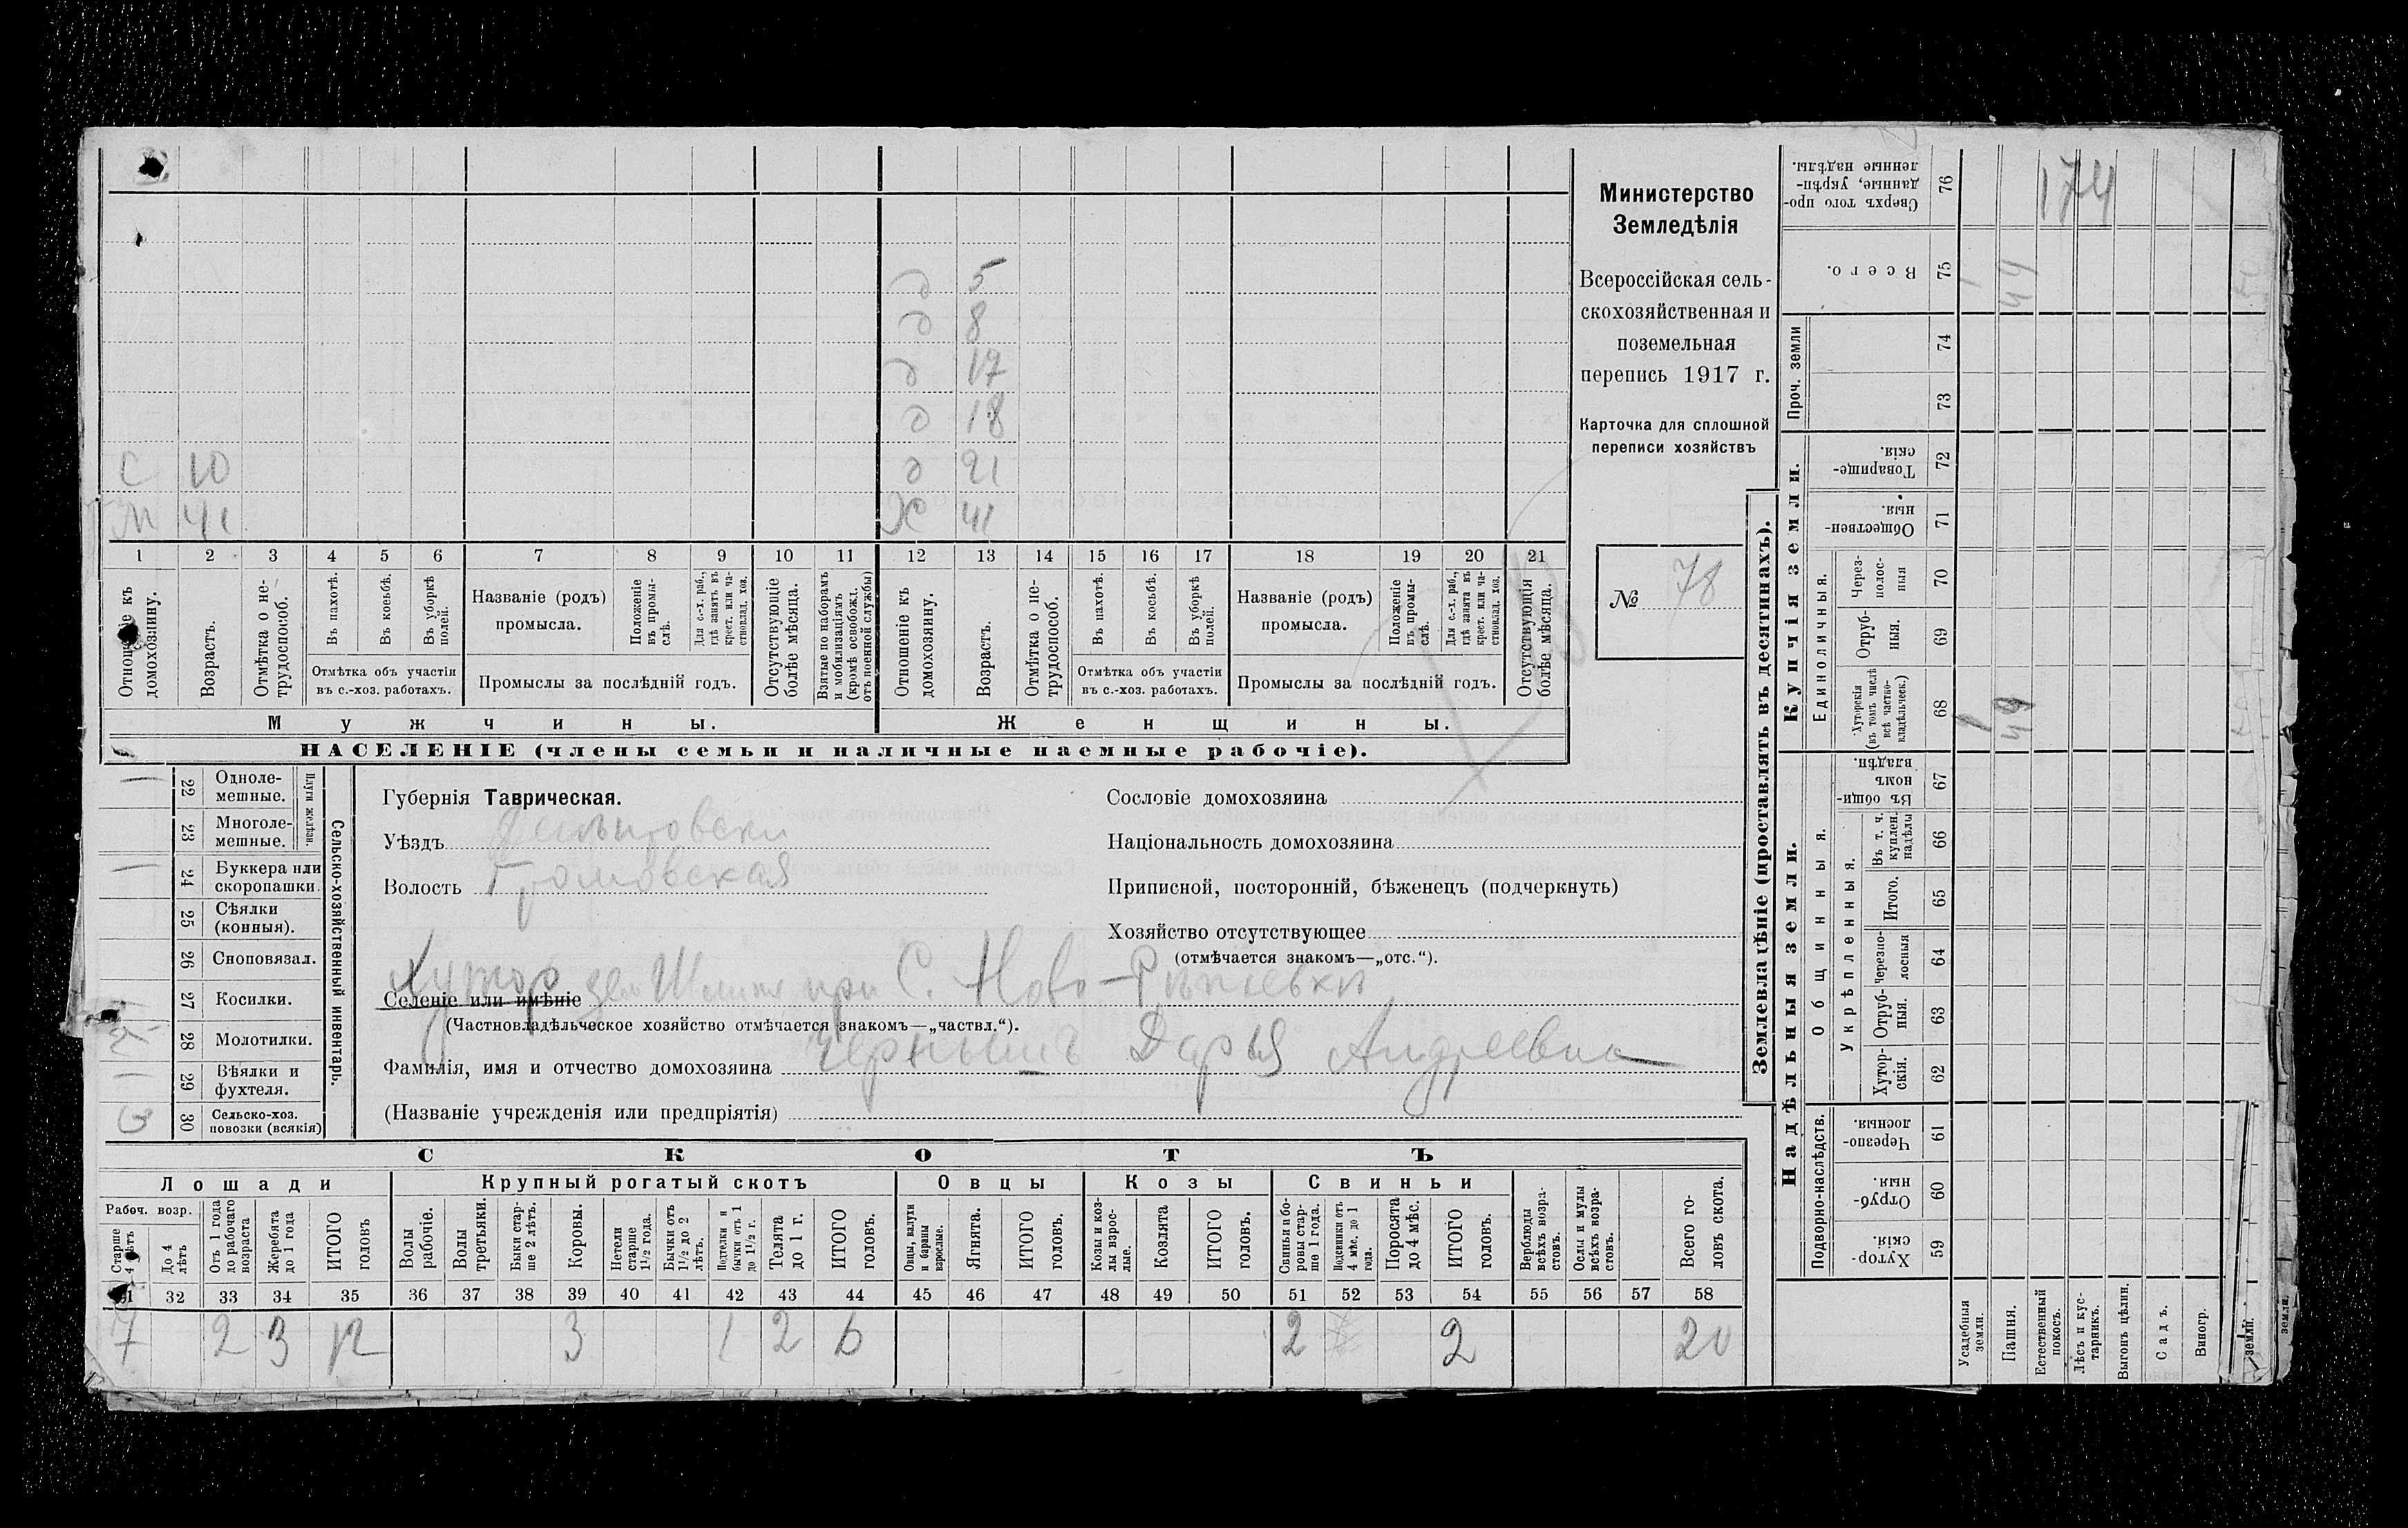 5
8
17
18
С 10 21
М 41 Ж 41
1 2 3 4 5 6 7 8 9 10 11 12 13 14 15 16 17 18 19 20 21
Отношеніе къ домохозяину.
Возрастъ.
Отмѣтка о не-трудоспособ.
Въ пахотѣ.
Въ косьбѣ.
Въ уборкѣ полей.
Отмѣтка объ участіи
въ с.-хоз. работахъ.
Названіе (родъ)
промысла.
Положеніе въ промы-слѣ.
Для с.-х. раб., гдѣ занятъ въ крест. или ча-стновлад. хоз.
Промыслы за послѣдній годъ.
Отсутствующіе болѣе мѣсяца.
Взятые по наборамъ и мобилизаціямъ (кромѣ освобожд. отъ военной службы)
Отношеніе къ домохозяину.
Возрастъ.
Отмѣтка о не-трудоспособ.
Въ пахотѣ.
Въ косьбѣ.
Въ уборкѣ полей.
Отмѣтка объ участіи
въ с.-хоз. работахъ.
Названіе (родъ)
промысла.
Положеніе въ промы-слѣ.
Для с.-х. раб., гдѣ занята въ крест. или ча-стновлад. хоз.
Промыслы за послѣдній годъ.
Отсутствующія болѣе мѣсяца.
Мужчины. Женщины.
НАСЕЛЕНІЕ (члены семьи и наличные наемные рабочіе).
Министерство
Земледѣлія
Всероссійская сель-
скохозяйственная и
поземельная
перепись 1917 г.
Карточка для сплошной
переписи хозяйствъ
№ 78
Сельско-хозяйственный инвентарь.
Плуги желѣзн.
22 Одноле-
мешные.
23 Многоле-
мешные.
24 Буккера или
скоропашки.
25 Сѣялки
(конныя).
26 Сноповязал.
27 Косилки.
28 Молотилки.
29 Вѣялки и
фухтеля.
30 Сельско-хоз.
повозки (всякія)
3
Губернія Таврическая.
Уѣздъ
Волость Громовская
Хутор
Селеніе или имѣніе при С. Ново-
(Частновладѣльческое хозяйство отмѣчается знакомъ—„частвл.“).
Фамилія, имя и отчество домохозяина Чернышъ Дарья Андреевна
(Названіе учрежденія или предпріятія)
Сословіе домохозяина
Національность домохозяина
Приписной, посторонній, бѣженецъ (подчеркнуть)
Хозяйство отсутствующее
(отмѣчается знакомъ—„отс.“).
СКОТЪ
Лошади Крупный рогатый скотъ Овцы Козы Свиньи
Рабоч. возр.
Старше 4 лѣтъ
До 4 лѣтъ
Отъ 1 года до рабочаго возраста
Жеребята до 1 года
ИТОГО головъ
Волы рабочіе.
Волы третьяки.
Быки стар-ше 2 лѣтъ.
Коровы.
Нетели старше 1½ года.
Бычки отъ 1½ до 2 лѣтъ.
Подтелки и бычки отъ 1 до 1½ г.
Телята до 1 г.
ИТОГО головъ.
Овцы, валухи и бараны взрослые.
Ягнята.
ИТОГО головъ.
Козы и коз-лы взрос-лые.
Козлята
ИТОГО головъ.
Свиньи и бо-ровы стар-ше 1 года.
Подсвинки отъ 4 мѣс. до 1 года.
Поросята до 4 мѣс.
ИТОГО головъ.
Верблюды всѣхъ возра-стовъ.
Ослы и мулы всѣхъ возра-стовъ.
Всего го-ловъ скота.
31 32 33 34 35 36 37 38 39 40 41 42 43 44 45 46 47 48 49 50 51 52 53 54 55 56 57 58
7 2 3 12 3 1 2 6 2 2 20
Землевладѣніе (проставлять въ десятинахъ).
Купчія земли.
Надѣльныя земли.
Проч. земли
Единоличныя.
Общинныя.
Укрѣпленныя.
Подворно-наслѣдств.
Сверхъ того про-данные, укрѣп-ленные надѣлы. 76 174
Всего. 75 1 49
74
73
Товарище-скія. 72
Обществен-ныя. 71
Через-полос-ныя 70
Отруб-ныя. 69
Хуторскія (въ томъ числѣ всѣ частно-владѣльческ.) 68 1 49
Въ общи-номъ владѣн. 67
Въ т. ч. куплен. надѣлы 66
Итого. 65
Черезпо-лосныя 64
Отруб-ныя. 63
Хутор-скія. 62
Черезпо-лосныя. 61
Отруб-ныя. 60
Хутор-скія. 59
Усадебныя земли.
Пашня.
Естественный покосъ.
Лѣсъ и кус-тарникъ.
Выгонъ цѣлин.
Садъ.
Виногр.
земли.
земли.